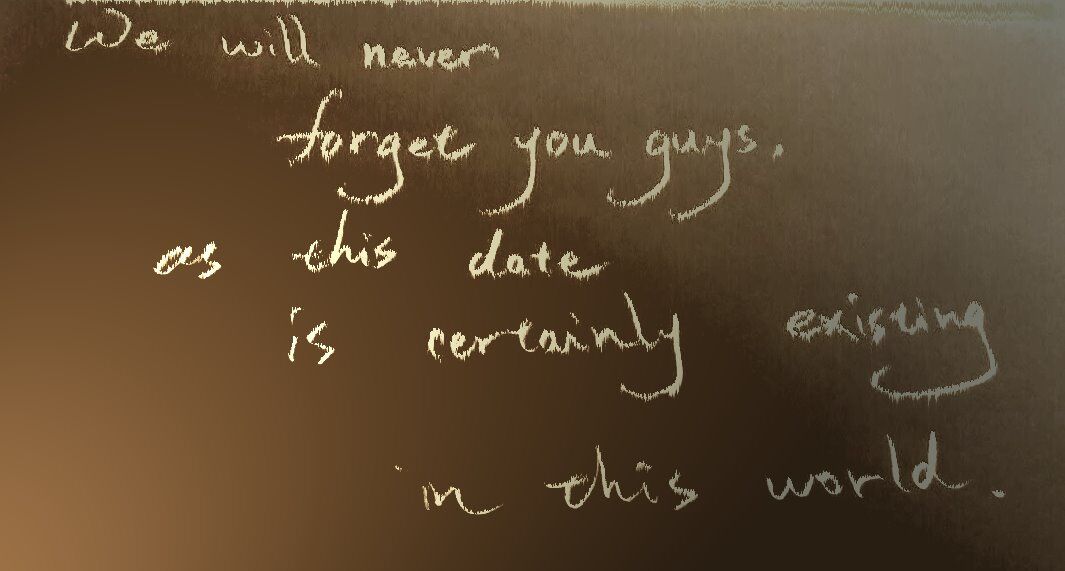 We will never
forget you guys.
as this date
is certainly existing
in this world.